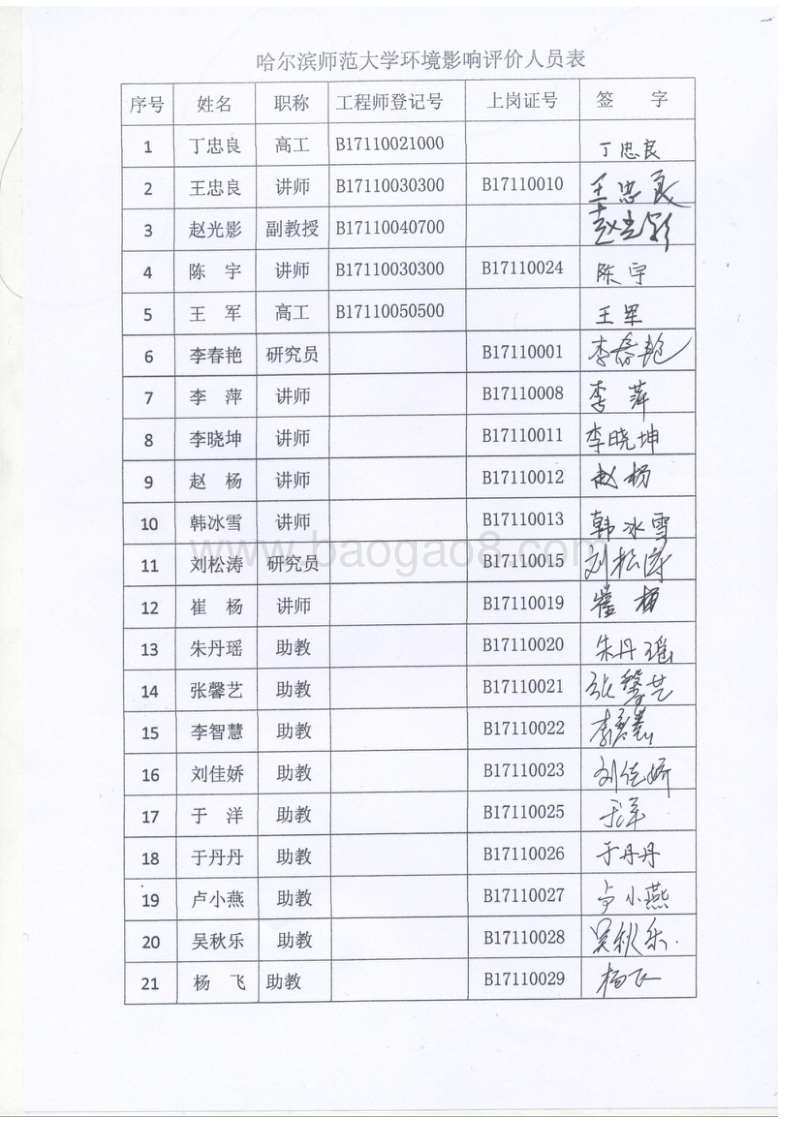 哈尔滨师范大学环境影响评价人员表
序号 姓名 职称 工程师登记号 上岗证号 签 字
1 丁忠良 高工 B17110021000 丁忠良
2 王忠良 讲师 B17110030300 B17110010 王忠良
3 赵光影 副教授 B17110040700 赵光影
4 陈 宇 讲师 B17110030300 B17110024 陈宇
5 王 军 高工 B17110050500 王军
6 李春艳 研究员 B17110001 李春艳
7 李 萍 讲师 B17110008 李萍
8 李晓坤 讲师 B17110011 李晓坤
9 赵 杨 讲师 B17110012 赵杨
10 韩冰雪 讲师 B17110013 韩冰雪
www.baogao8.com
11 刘松涛 研究员 B17110015 刘松涛
12 崔 杨 讲师 B17110019 崔杨
13 朱丹瑶 助教 B17110020 朱丹瑶
14 张馨艺 助教 B17110021 张馨艺
15 李智慧 助教 B17110022 李智慧
16 刘佳娇 助教 B17110023 刘佳娇
17 于 洋 助教 B17110025 于洋
18 于丹丹 助教 B17110026 于丹丹
19 卢小燕 助教 B17110027 卢小燕
20 吴秋乐 助教 B17110028 吴秋乐
21 杨 飞 助教 B17110029 杨飞